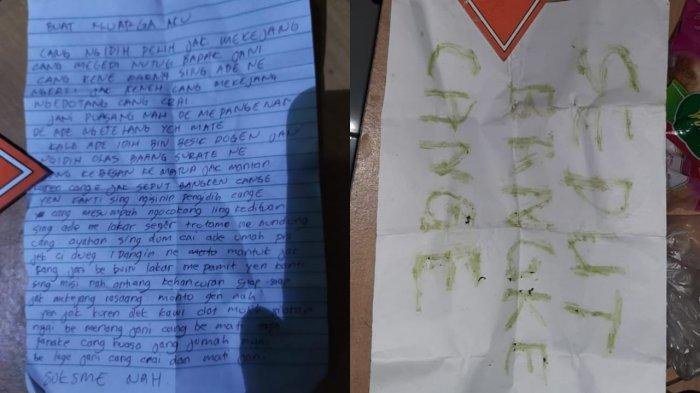 BUAT KLUARGA AKU
CANG NGIDIH PELIH JAK MEKEJANG
CANG MEGEDI NUTUG BAPAK JANI
CANG KENE SING ADE NE
NGERTI JAK KENEH CANG MEKEJANG
NGEDOTANG CANG CRAI
JANI PUASANG NAH DE MEPANGENAN
DE ADE NGETELANG YEH MATE
KALO ADE IDIH BIN BESIK DOGEN JAN
NGIDIH OLAS BAANG SURATE NE
KE MATUA JAK MANTAN
CANGE JAK SEPUT BANGKEN CANGE
YEN BAKTI sing ngisinin pengidih cange
cang mesumpah ngocokang ling keditwan
sing ade ne lakar seger ne nundung
cang ayahan sing dum cai ade umah
jeb ci duweg I Dangin ne mantuk jak
jani be buin lakar me pamit yen
sing misi nah antiang kehancuran siap-siap
jak mekejang rasaang monto gen nah
yen jak kuren dek kawi
ngai be menang jani cang be mati
panake cang kuase jang jumah
be lege jani cang crai dan mati jani
SUKSME NAH.
SEPUT
BANGKE
CANGE